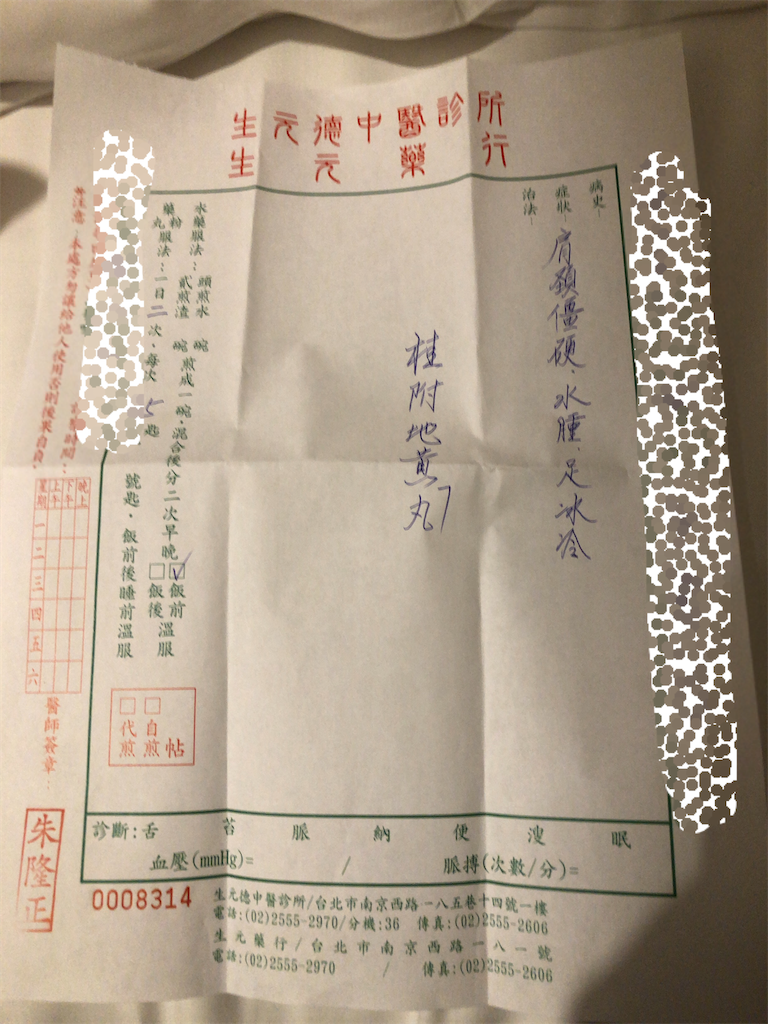 生元德中醫診所
生元藥行
病史-
症狀-
治法-
肩頸僵硬、水腫、足冰冷
桂附地黃丸7
水藥服法：頭煎水 碗
貳煎渣 碗煎成一碗，混合後分二次早晚☑飯前
☐飯後
溫服
藥粉丸服法：一日二次，每次5匙
號 匙，飯前後睡前溫服
☐自煎
☐代煎
帖
※注意：本處方勿讓給他人使用否則後果自負。
時間：
星期 一 二 三 四 五 六
上午
下午
晚上
醫師簽章：
朱隆正
診斷：舌 苔 脈 納 便 溲 眠
血壓(mmHg)= / 脈搏(次數/分)=
0008314
生元德中醫診所/台北市南京西路一八五巷十四號一樓
電話:(02)2555-2970/分機:36 傳真:(02)2555-2606
生元藥行/台北市南京西路一八一號
電話:(02)2555-2970 / 傳真:(02)2555-2606